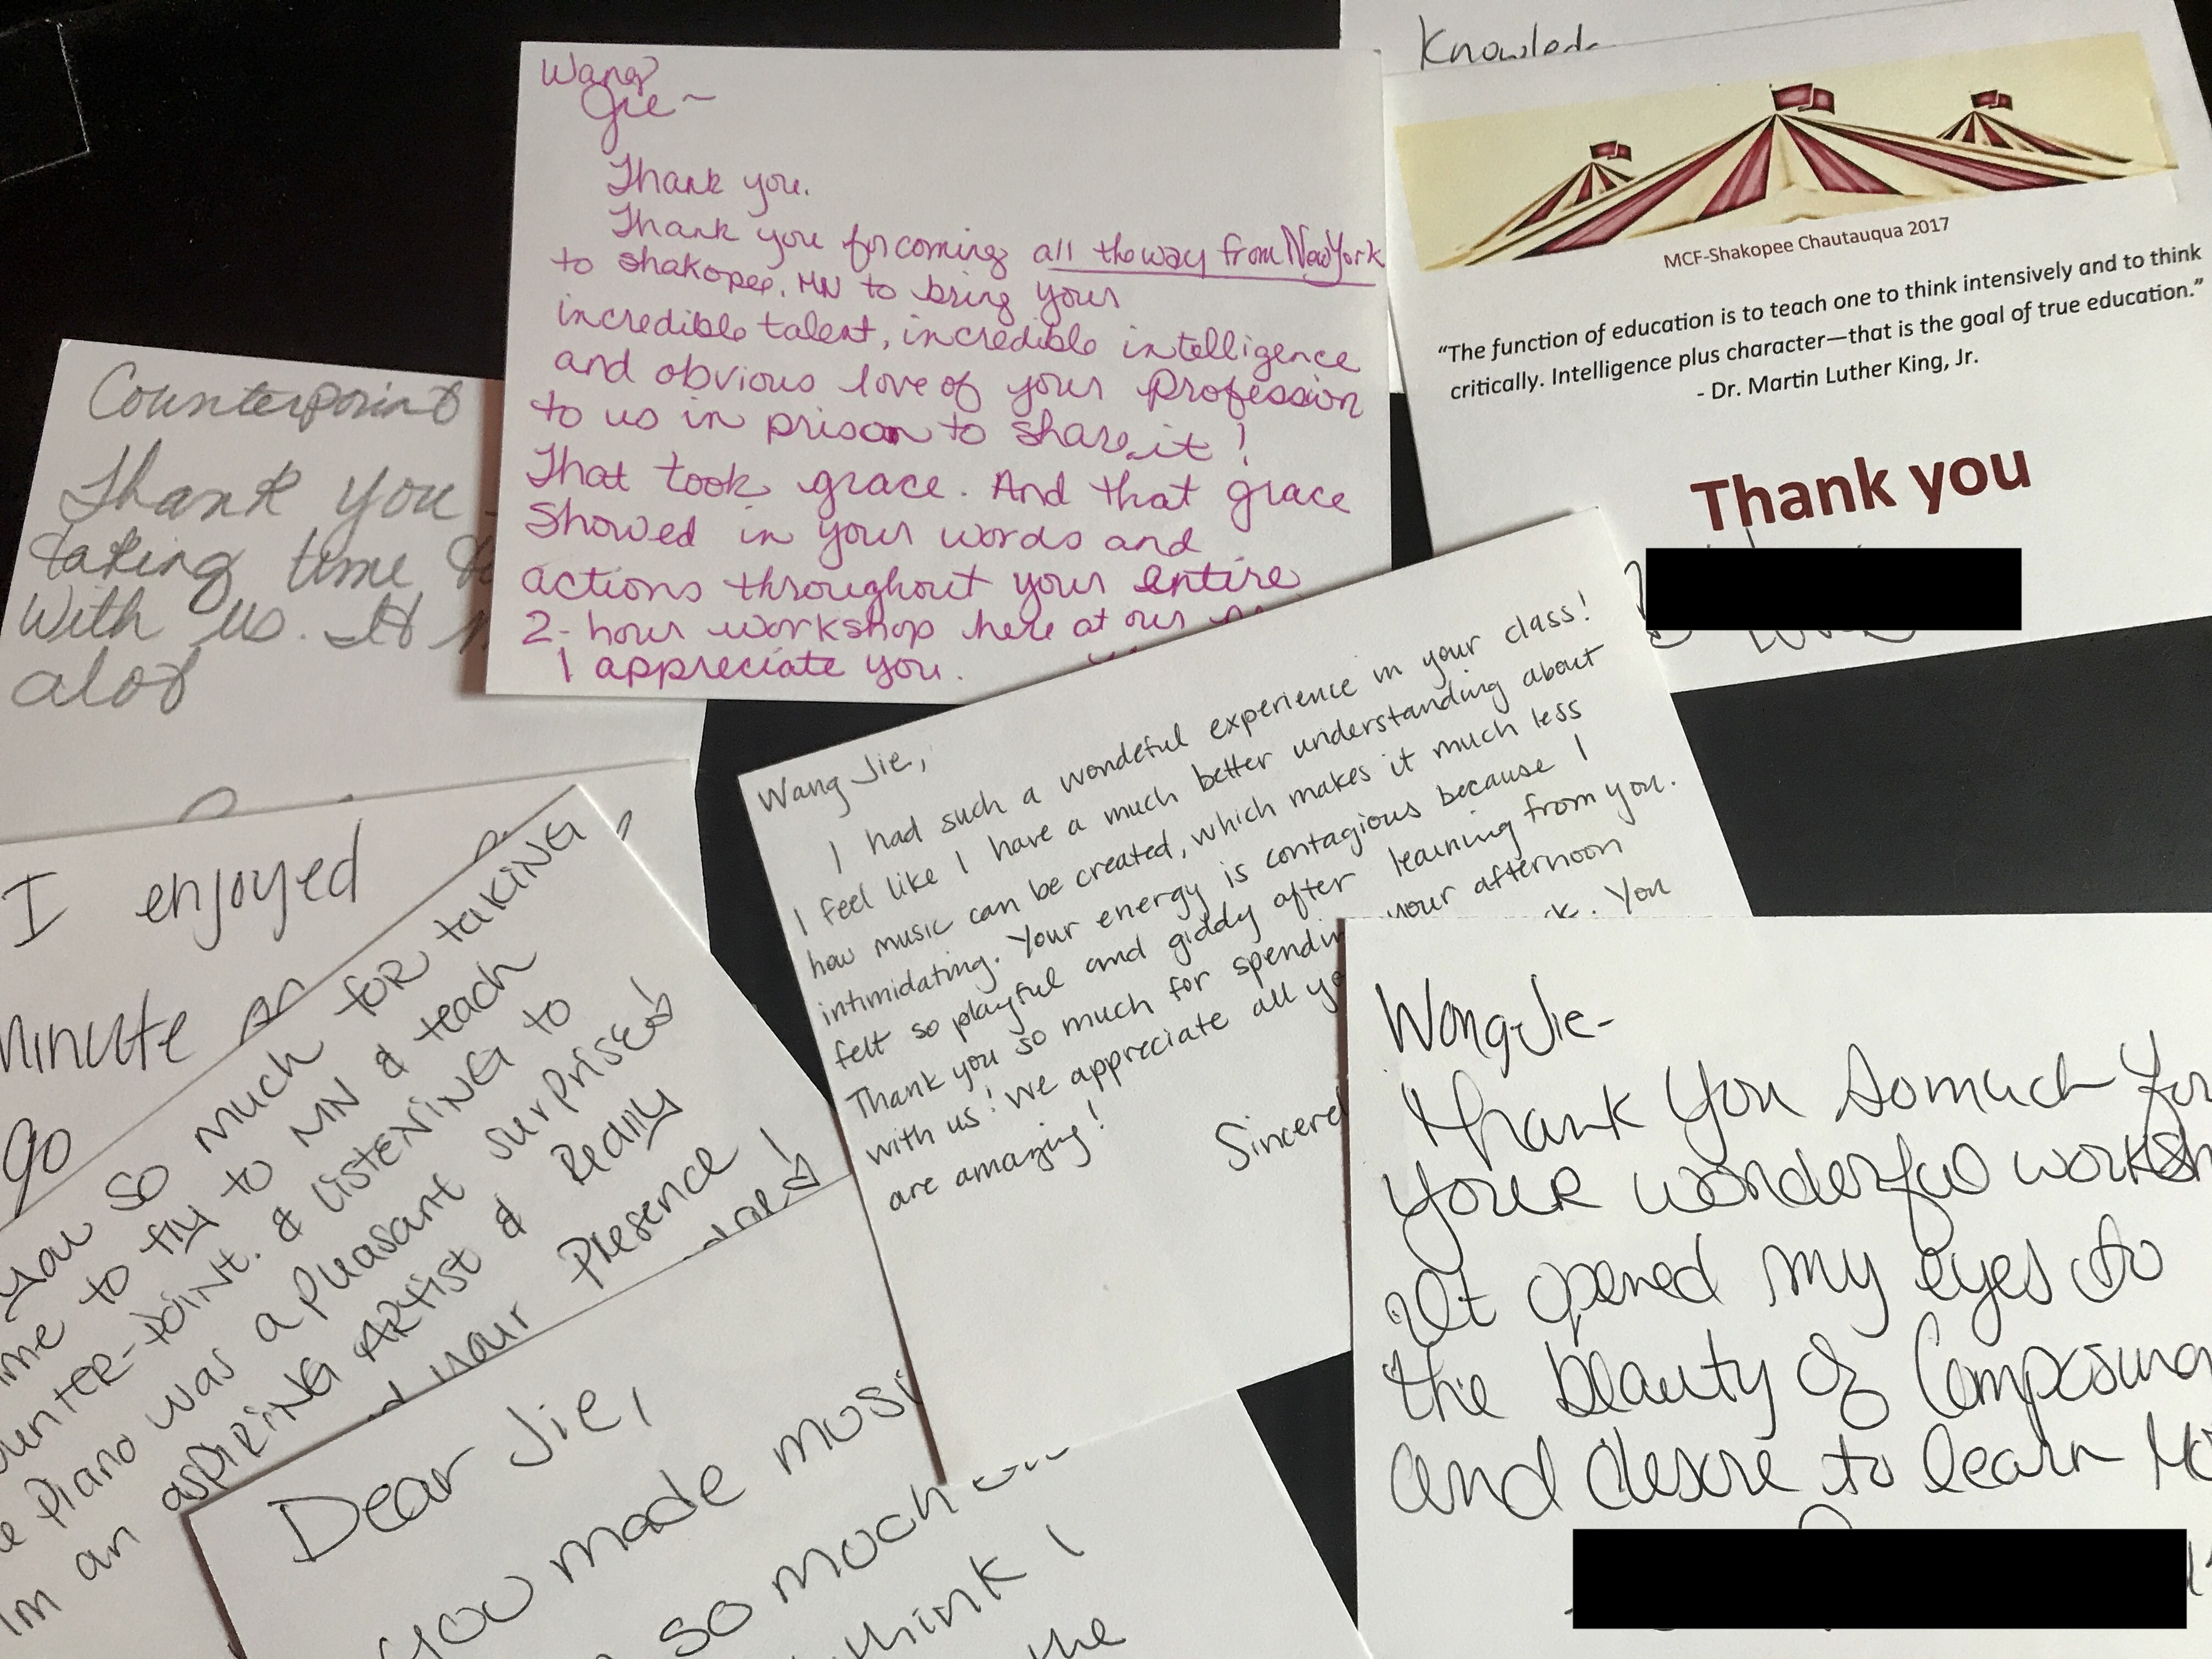 Wang
Jie~
Thank you.
Thank you for coming all the way from New York
to shakopee, MN to bring your
incredible talent, incredible intelligence
and obvious love of your profession
to us in prison to share it!
That took grace. And that grace
showed in your words and
actions throughout your entire
2-hour workshop here at our
I appreciate you.
MCF-Shakopee Chautauqua 2017
“The function of education is to teach one to think intensively and to think
critically. Intelligence plus character—that is the goal of true education.”
- Dr. Martin Luther King, Jr.
Thank you
Counterpoint
Thank you
taking time
with us. It
alot
Wang Jie,
I had such a wondeful experience in your class!
I feel like I have a much better understanding about
how music can be created, which makes it much less
intimidating. Your energy is contagious because I
felt so playful and giddy after learning from you.
Thank you so much for spending your afternoon
with us! We appreciate all You
are amazing!
I enjoyed
minute
go
you so much for taking
to fly to MN & teach
& listening to
Piano was a pleasant surprise!
Im an aspiring Artist & Really
your Presence!
Wong Jie-
Thank you somuch for
your wonderful
It opened my eyes to
the beauty of Composing
and desire to learn
Dear Jie,
you made
so much
think I
the